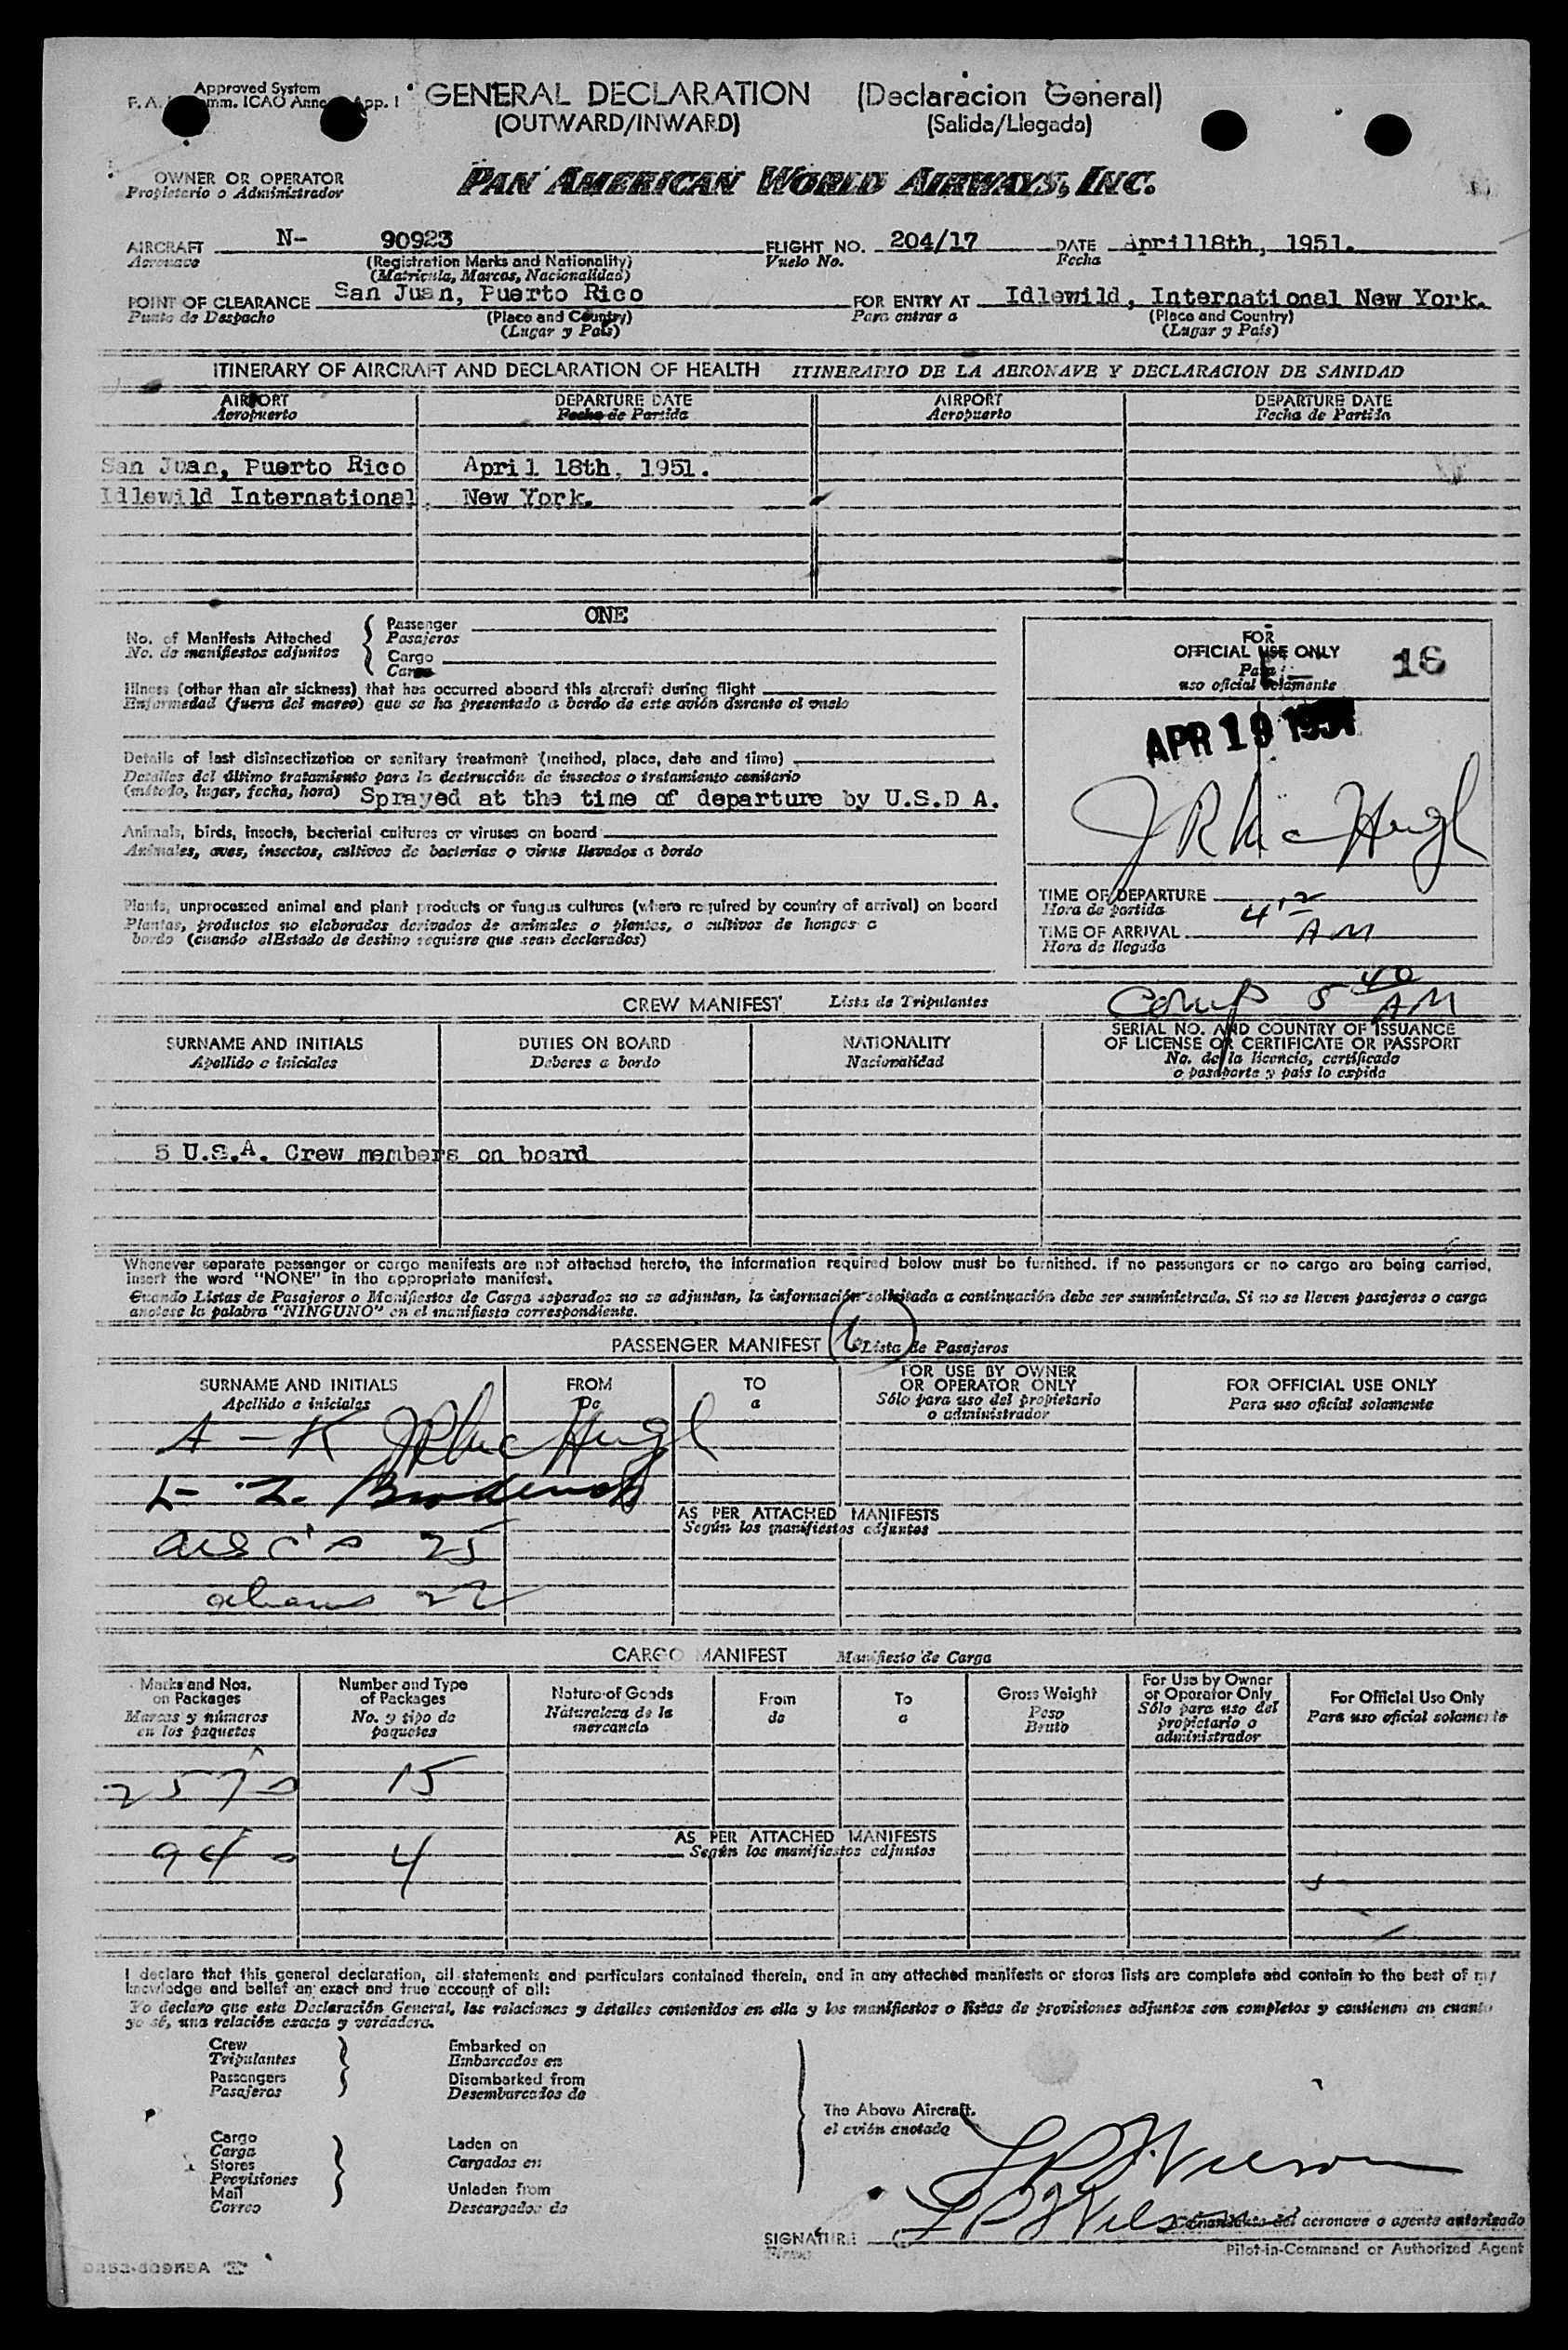 Approved System
GENERAL DECLARATION (Declaracion General)
(OUTWARD/INWARD) (Salida/Llegada)
OWNER OR OPERATOR
Propietario o Administrador
PAN AMERICAN WORLD AIRWAYS, INC.
AIRCRAFT N- 90923 FLIGHT NO. 204/17 DATE April18th, 1951.
Aeronave (Registration Marks and Nationality) Vuelo No. Fecha
(Matricula, Marcas, Nacionalidad)
POINT OF CLEARANCE San Juan, Puerto Rico FOR ENTRY AT Idlewild, International New York.
Punto de Despacho (Place and Country) Para entrar a (Place and Country)
(Lugar y País) (Lugar y País)
ITINERARY OF AIRCRAFT AND DECLARATION OF HEALTH ITINERARIO DE LA AERONAVE Y DECLARACION DE SANIDAD
AIRPORT DEPARTURE DATE AIRPORT DEPARTURE DATE
Aeropuerto Fecha de Partida Aeropuerto Fecha de Partida
San Juan, Puerto Rico April 18th, 1951.
Idlewild International, New York.
No. of Manifests Attached Passenger ONE
No. de manifiestos adjuntos Pasajeros
Cargo
Carga
Illness (other than air sickness) that has occurred aboard this aircraft during flight
Enfermedad (fuera del mareo) que se ha presentado a bordo de este avión durante el vuelo
Details of last disinsectization or sanitary treatment (method, place, date and time)
Detalles del último tratamiento para la destrucción de insectos o tratamiento sanitario
(método, lugar, fecha, hora) Sprayed at the time of departure by U.S.D A.
Animals, birds, insects, bacterial cultures or viruses on board
Animales, aves, insectos, cultivos de bacterias o virus llevados a bordo
Plants, unprocessed animal and plant products or fungus cultures (where required by country of arrival) on board
Plantas, productos no elaborados derivados de animales o plantas, o cultivos de hongos a
bordo (cuando elEstado de destino requiere que sean declarados)
FOR
OFFICIAL USE ONLY 16
Para
uso oficial solamente
APR 19 1951
TIME OF DEPARTURE
Hora de partida
TIME OF ARRIVAL 4 12 AM
Hora de llegada
Comp 5 40 AM
CREW MANIFEST Lista de Tripulantes
SURNAME AND INITIALS DUTIES ON BOARD NATIONALITY SERIAL NO. AND COUNTRY OF ISSUANCE
OF LICENSE OR CERTIFICATE OR PASSPORT
Apellido e iniciales Deberes a bordo Nacionalidad No. de la licencia, certificado
o pasaporte y país lo expida
5 U.S.A. Crew members on board
Whenever separate passenger or cargo manifests are not attached hereto, the information required below must be furnished. If no passengers or no cargo are being carried,
insert the word "NONE" in the appropriate manifest.
Cuando Listas de Pasajeros o Manifiestos de Carga separados no se adjuntan, la información solicitada a continuación debe ser suministrada. Si no se lleven pasajeros o carga
anotese la palabra "NINGUNO" en el manifiesto correspondiente.
PASSENGER MANIFEST Lista de Pasajeros
SURNAME AND INITIALS FROM TO FOR USE BY OWNER
OR OPERATOR ONLY FOR OFFICIAL USE ONLY
Apellido e iniciales De a Sólo para uso del propietario
o administrador Para uso oficial solamente
A - K
L - Z
AS PER ATTACHED MANIFESTS
Según los manifiestos adjuntos
25
aliens 22
CARGO MANIFEST Manifiesto de Carga
Marks and Nos.
on Packages
Marcas y números
en los paquetes
Number and Type
of Packages
No. y tipo de
paquetes
Nature of Goods
Naturaleza de la
mercancía
From
de
To
a
Gross Weight
Peso
Bruto
For Use by Owner
or Operator Only
Sólo para uso del
propietario o
administrador
For Official Use Only
Para uso oficial solamente
15
4
AS PER ATTACHED MANIFESTS
Según los manifiestos adjuntos
I declare that this general declaration, all statements and particulars contained therein, and in any attached manifests or stores lists are complete and contain to the best of my
knowledge and belief an exact and true account of all:
Yo declaro que esta Declaración General, las relaciones y detalles contenidos en ella y los manifiestos o listas de provisiones adjuntos son completos y contienen en cuanto
yo sé, una relación exacta y verdadera.
Crew
Tripulantes
Passengers
Pasajeros
Embarked on
Embarcados en
Disembarked from
Desembarcados de
Cargo
Carga
Stores
Provisiones
Mail
Correo
Laden on
Cargados en
Unladen from
Descargados de
The Above Aircraft.
el avión anotado
SIGNATURE
Firma
del aeronave o agente autorizado
Pilot-in-Command or Authorized Agent